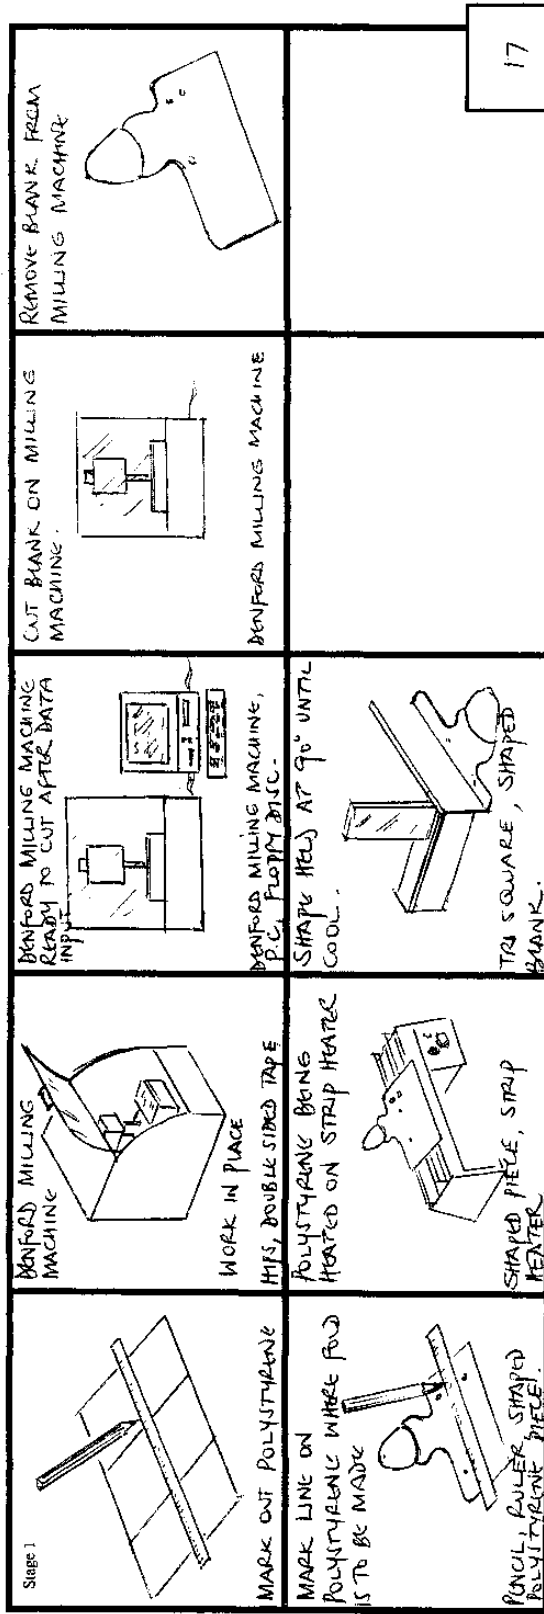 17
Stage 1
MARK OUT POLYSTYRENE
DENFORD MILLING
MACHINE
WORK IN PLACE
HIPS, DOUBLE SIDED TAPE
DENFORD MILLING MACHINE
READY TO CUT AFTER DATA
INPUT
DENFORD MILLING MACHINE,
P.C, FLOPPY DISC.
CUT BLANK ON MILLING
MACHINE.
DENFORD MILLING MACHINE
REMOVE BLANK FROM
MILLING MACHINE
MARK LINE ON
POLYSTYRENE WHERE FOLD
IS TO BE MADE
PENCIL, RULER SHAPED
POLYSTYRENE PIECE.
POLYSTYRENE BEING
HEATED ON STRIP HEATER
SHAPED PIECE, STRIP
HEATER
SHAPE HELD AT 90° UNTIL
COOL.
TRI SQUARE, SHAPED
BLANK.